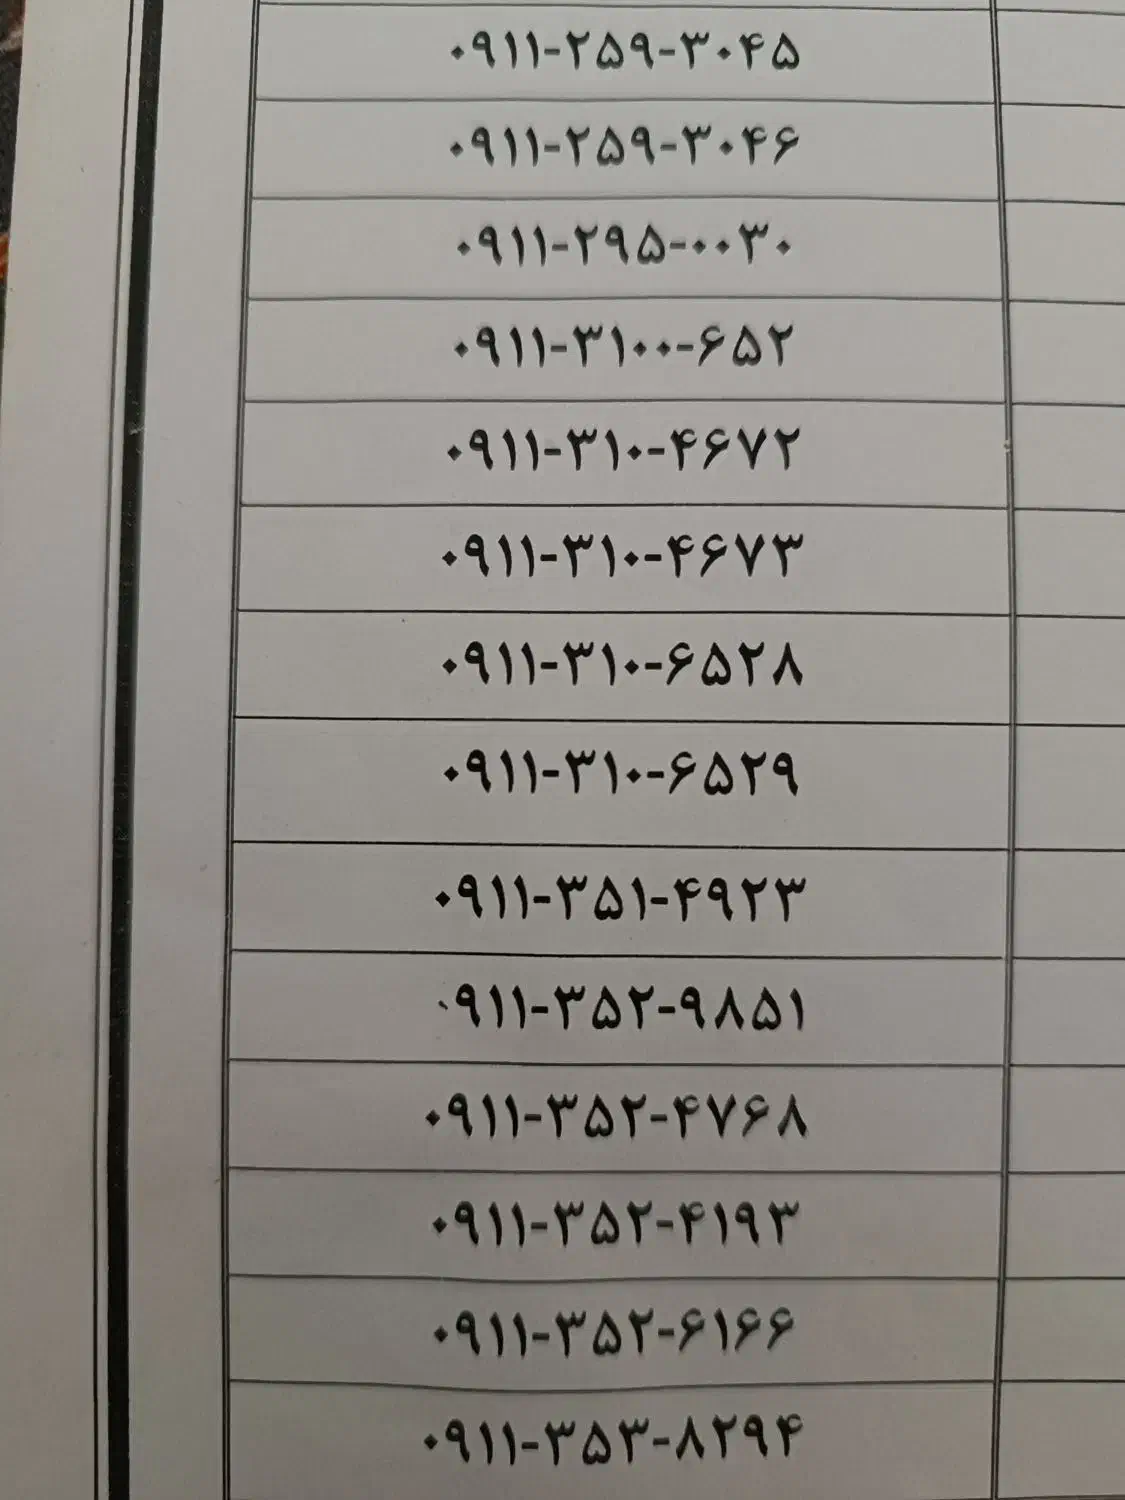 ۰۹۱۱-۲۵۹-۳۰۴۵
۰۹۱۱-۲۵۹-۳۰۴۶
۰۹۱۱-۲۹۵-۰۰۳۰
۰۹۱۱-۳۱۰۰-۶۵۲
۰۹۱۱-۳۱۰-۴۶۷۲
۰۹۱۱-۳۱۰-۴۶۷۳
۰۹۱۱-۳۱۰-۶۵۲۸
۰۹۱۱-۳۱۰-۶۵۲۹
۰۹۱۱-۳۵۱-۴۹۲۳
۰۹۱۱-۳۵۲-۹۸۵۱
۰۹۱۱-۳۵۲-۴۷۶۸
۰۹۱۱-۳۵۲-۴۱۹۳
۰۹۱۱-۳۵۲-۶۱۶۶
۰۹۱۱-۳۵۳-۸۲۹۴